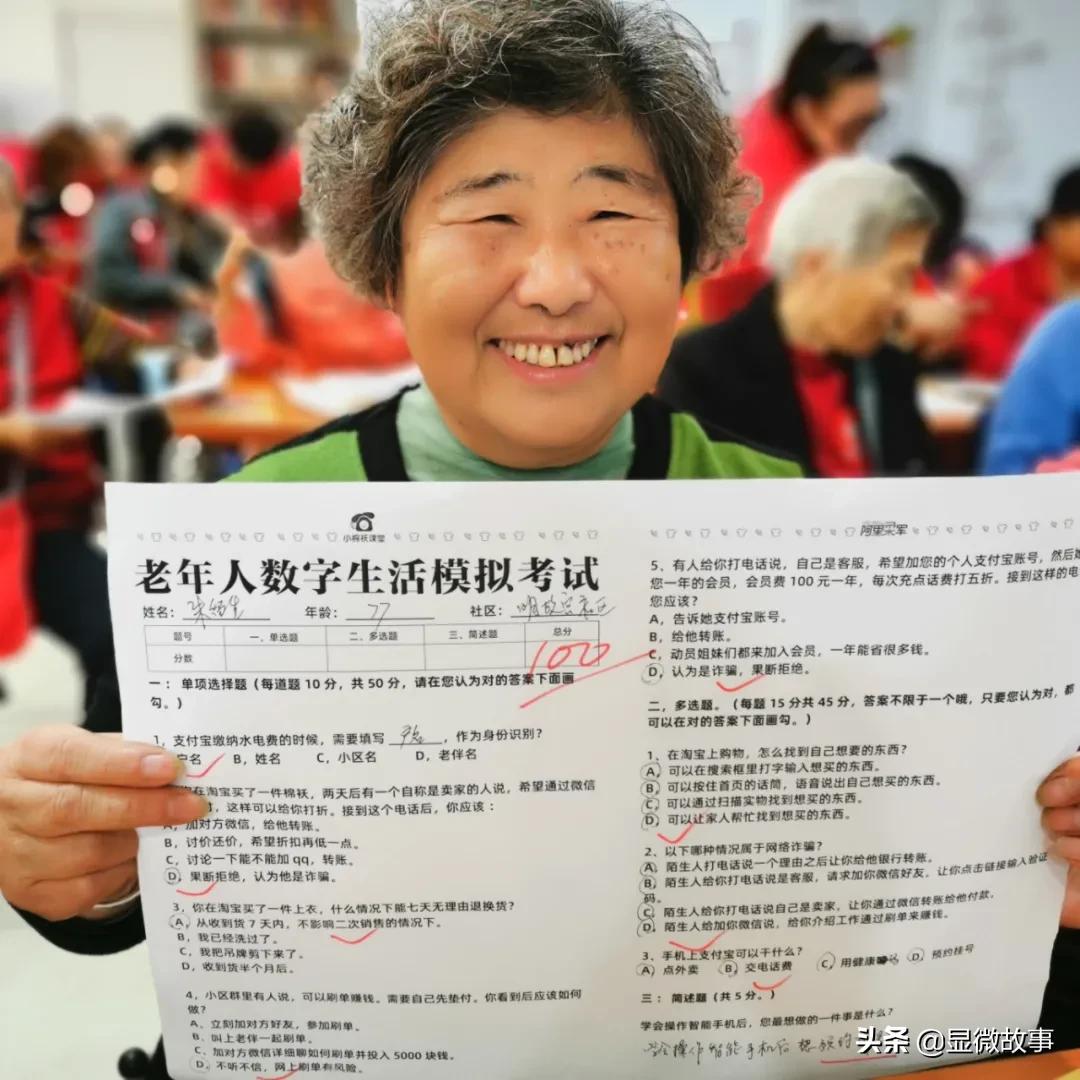 小棉袄课堂
老年人数字生活模拟考试
姓名： 年龄：77 社区：明故宫社区
题号 一、单选题 二、多选题 三、简述题 总分
分数 100
一：单项选择题（每道题 10 分，共 50 分，请在您认为对的答案下面画
勾。）
1，支付宝缴纳水电费的时候，需要填写 ，作为身份识别？
户名 B，姓名 C，小区名 D，老伴名
在淘宝买了一件棉袄，两天后有一个自称是卖家的人说，希望通过微信
，这样可以给你打折。接到这个电话后，你应该：
A，加对方微信，给他转账。
B，讨价还价，希望折扣再低一点。
C，讨论一下能不能加 qq，转账。
D，果断拒绝，认为他是诈骗。
3，你在淘宝买了一件上衣，什么情况下能七天无理由退换货？
A，从收到货 7 天内，不影响二次销售的情况下。
B，我已经洗过了。
C，我把吊牌剪下来了。
D，收到货半个月后。
4，小区群里有人说，可以刷单赚钱。需要自己先垫付。你看到后应该如何
做？
A、立刻加对方好友，参加刷单。
B、叫上老伴一起刷单。
C、加对方微信详细聊如何刷单并投入 5000 块钱。
D、不听不信，网上刷单有风险。
5，有人给你打电话说，自己是客服，希望加您的个人支付宝账号，然后
您一年的会员，会员费 100 元一年，每次充点话费打五折。接到这样的电
您应该？
A，告诉她支付宝账号。
B，给他转账。
C，动员姐妹们都来加入会员，一年能省很多钱。
D，认为是诈骗，果断拒绝。
二，多选题。（每题 15 分共 45 分，答案不限于一个哦，只要您认为对，都
可以在对的答案下面画勾。）
1，在淘宝上购物，怎么找到自己想要的东西？
A，可以在搜索框里打字输入想买的东西。
B，可以按住首页的话筒，语音说出自己想买的东西。
C，可以通过扫描实物找到想买的东西。
D，可以让家人帮忙找到想买的东西。
2，以下哪种情况属于网络诈骗？
A，陌生人打电话说一个理由之后让你给他银行转账。
B，陌生人给你打电话说是客服，请求加你微信好友，让你点击链接输入验证
码。
C，陌生人给你打电话说自己是卖家，让你通过微信转账给他付款。
D，陌生人给加你微信说，给你介绍工作通过刷单来赚钱。
3，手机上支付宝可以干什么？
A）点外卖 B）交电话费 C，用健康码 D）预约挂号
三：简述题（共 5 分。）
学会操作智能手机后，您最想做的一件事是什么？
学会操作智能手机后想
头条 @显微故事